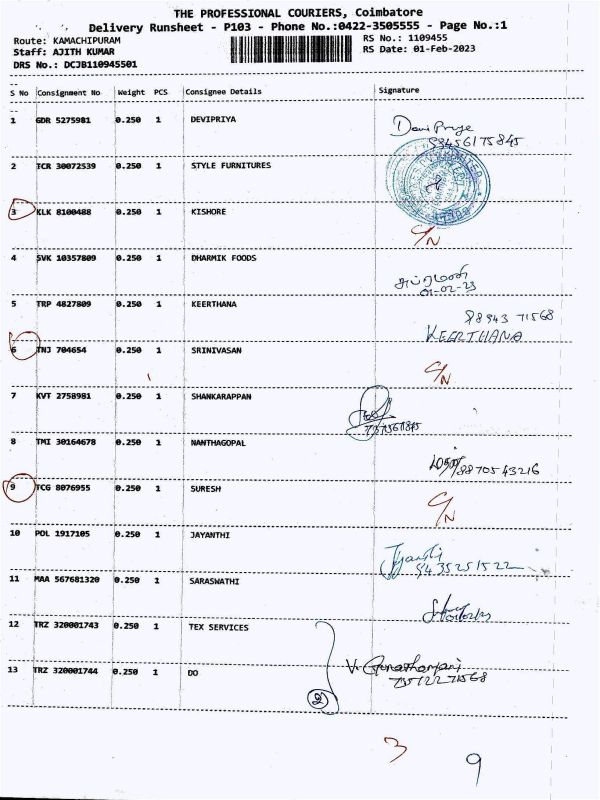 THE PROFESSIONAL COURIERS, Coimbatore
Delivery Runsheet - P103 - Phone No.:0422-3505555 - Page No.:1
Route: KAMACHIPURAM
RS No.: 1109455
Staff: AJITH KUMAR
RS Date: 01-Feb-2023
DRS No.: DCJB110945501
S No Consignment No Weight PCS Consignee Details Signature
1 GDR 5275981 0.250 1 DEVIPRIYA Devi Priya
9345617 5845
2 TCR 30072539 0.250 1 STYLE FURNITURES
3 KLK 8100488 0.250 1 KISHORE C/N
4 SVK 10357809 0.250 1 DHARMIK FOODS
01-02-23
5 TRP 4827809 0.250 1 KEERTHANA 88943 71568
KEERTHANA
6 TNJ 704654 0.250 1 SRINIVASAN C/N
7 KVT 2758981 0.250 1 SHANKARAPPAN
8 TMI 30164678 0.250 1 NANTHAGOPAL 8870543216
9 TCG 8076955 0.250 1 SURESH C/N
10 POL 1917105 0.250 1 JAYANTHI
9435251522
11 MAA 567681320 0.250 1 SARASWATHI
12 TRZ 320001743 0.250 1 TEX SERVICES
13 TRZ 320001744 0.250 1 DO
2
3 9